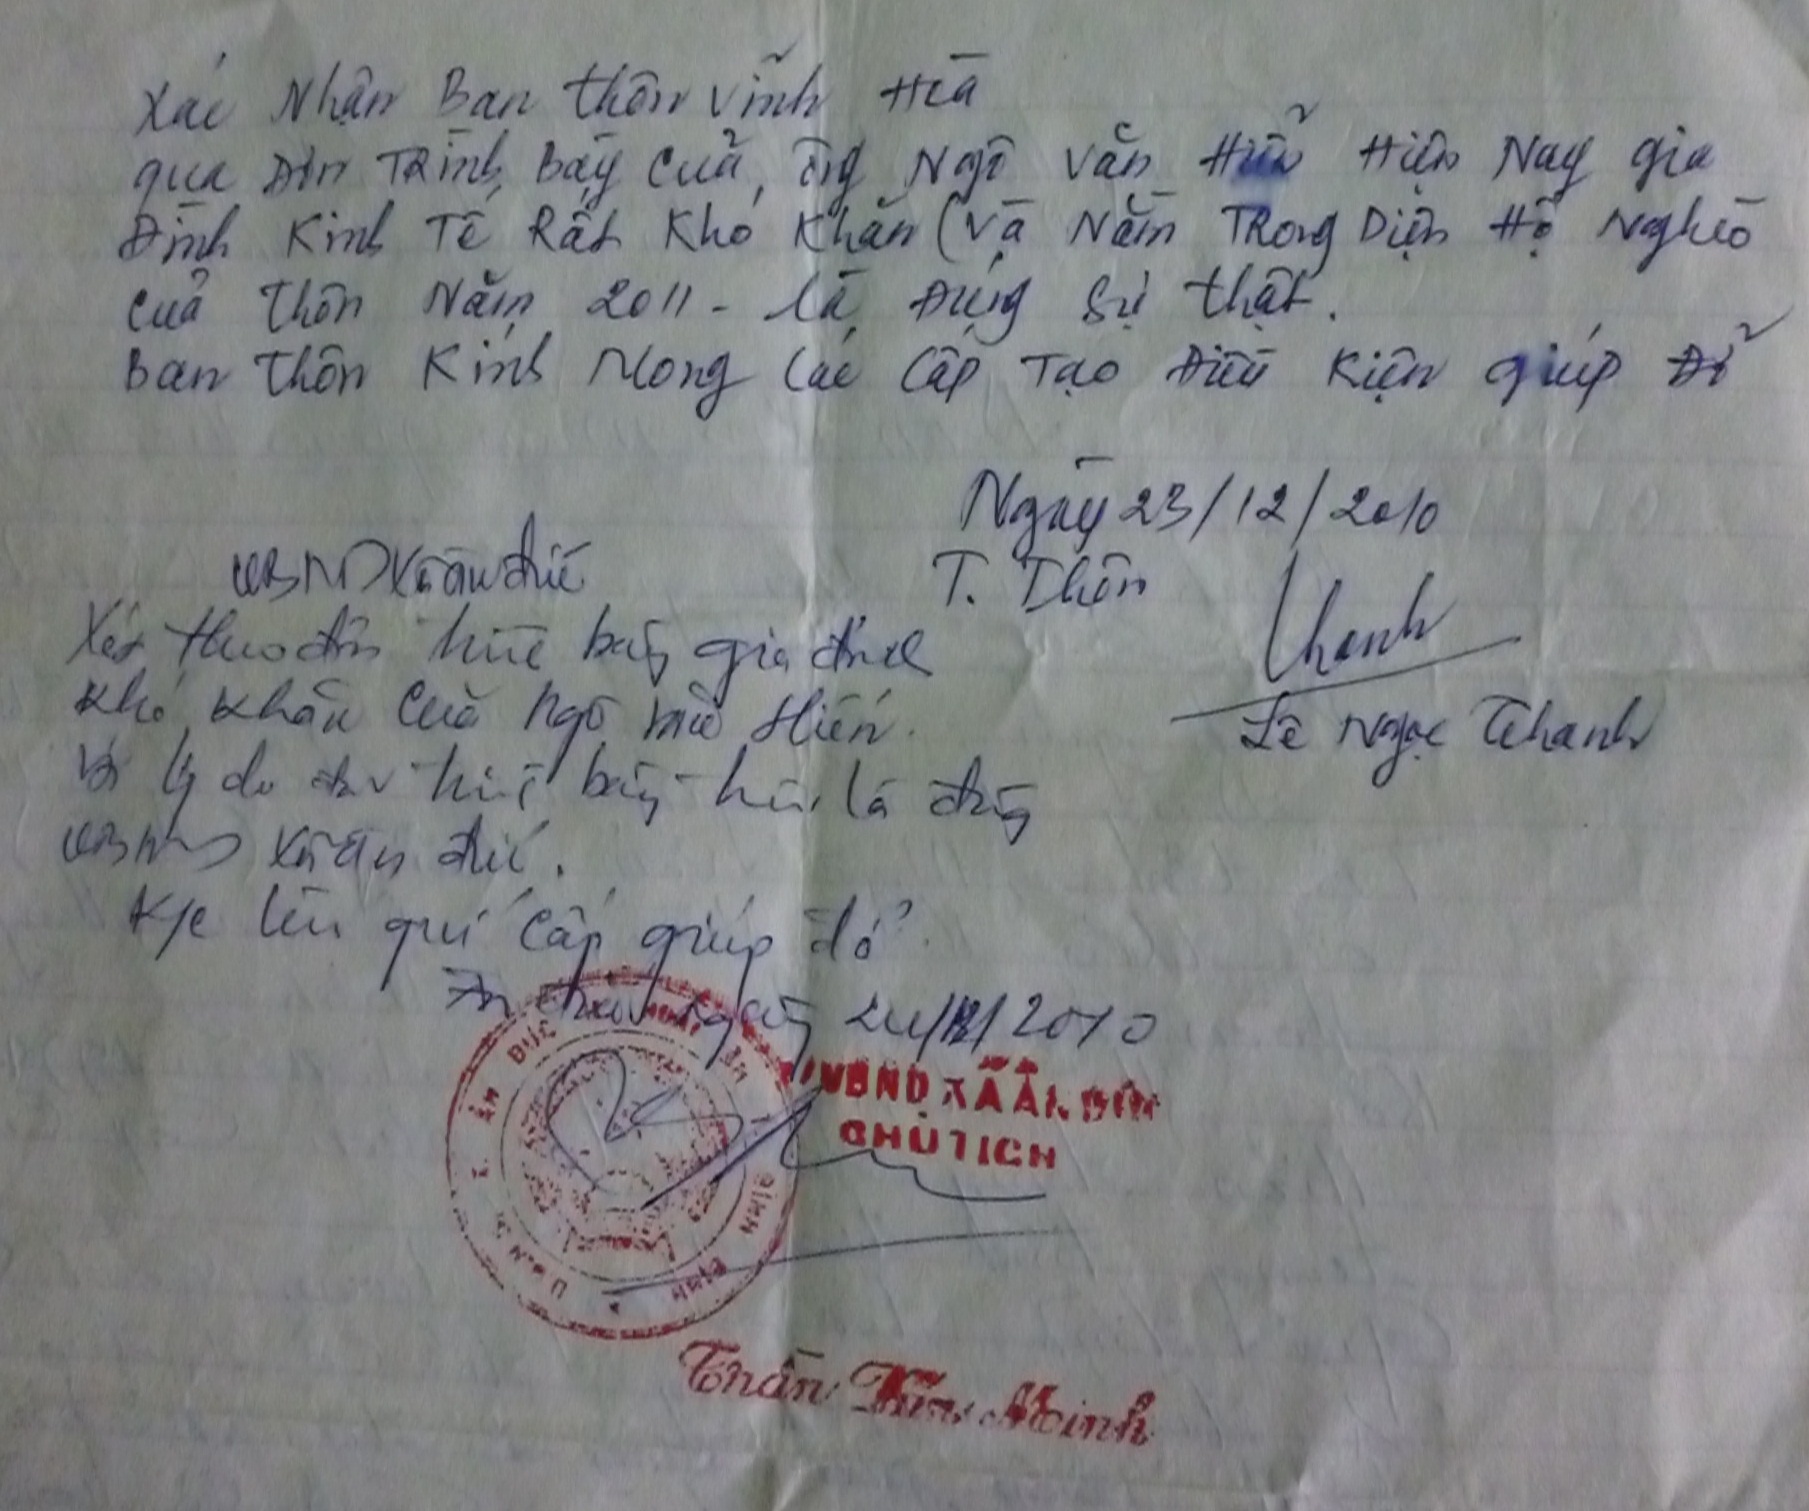 Xác Nhận Ban thôn Vĩnh Hòa
qua Đơn Trình Bày Của, Ông Ngô Văn Hiển Hiện Nay gia
Đình Kinh Tế Rất Khó Khăn (Và Nằm Trong Diện Hộ Nghèo
Của Thôn Năm 2011 - là Đúng Sự thật.
Ban Thôn Kính Mong Các Cấp Tạo Điều Kiện giúp Đở
Ngày 23/12/2010
T. Thôn
Thanh
Lê Ngọc Thanh
UBND Xã Ân đức
Xét theo đơn trình bày gia đình
khó khăn Của Ngô văn Hiển.
Và lý do đơn trình bày trên là đúng
UBND Xã Ân đức.
K/c lên quí Cấp giúp đở.
Ân đức ngày /12/2010
UBND XÃ ÂN ĐỨC
CHỦ TỊCH
X. ÂN ĐỨC H. HOÀI ÂN T. BÌNH ĐỊNH
U.B.N.D
Trần Minh